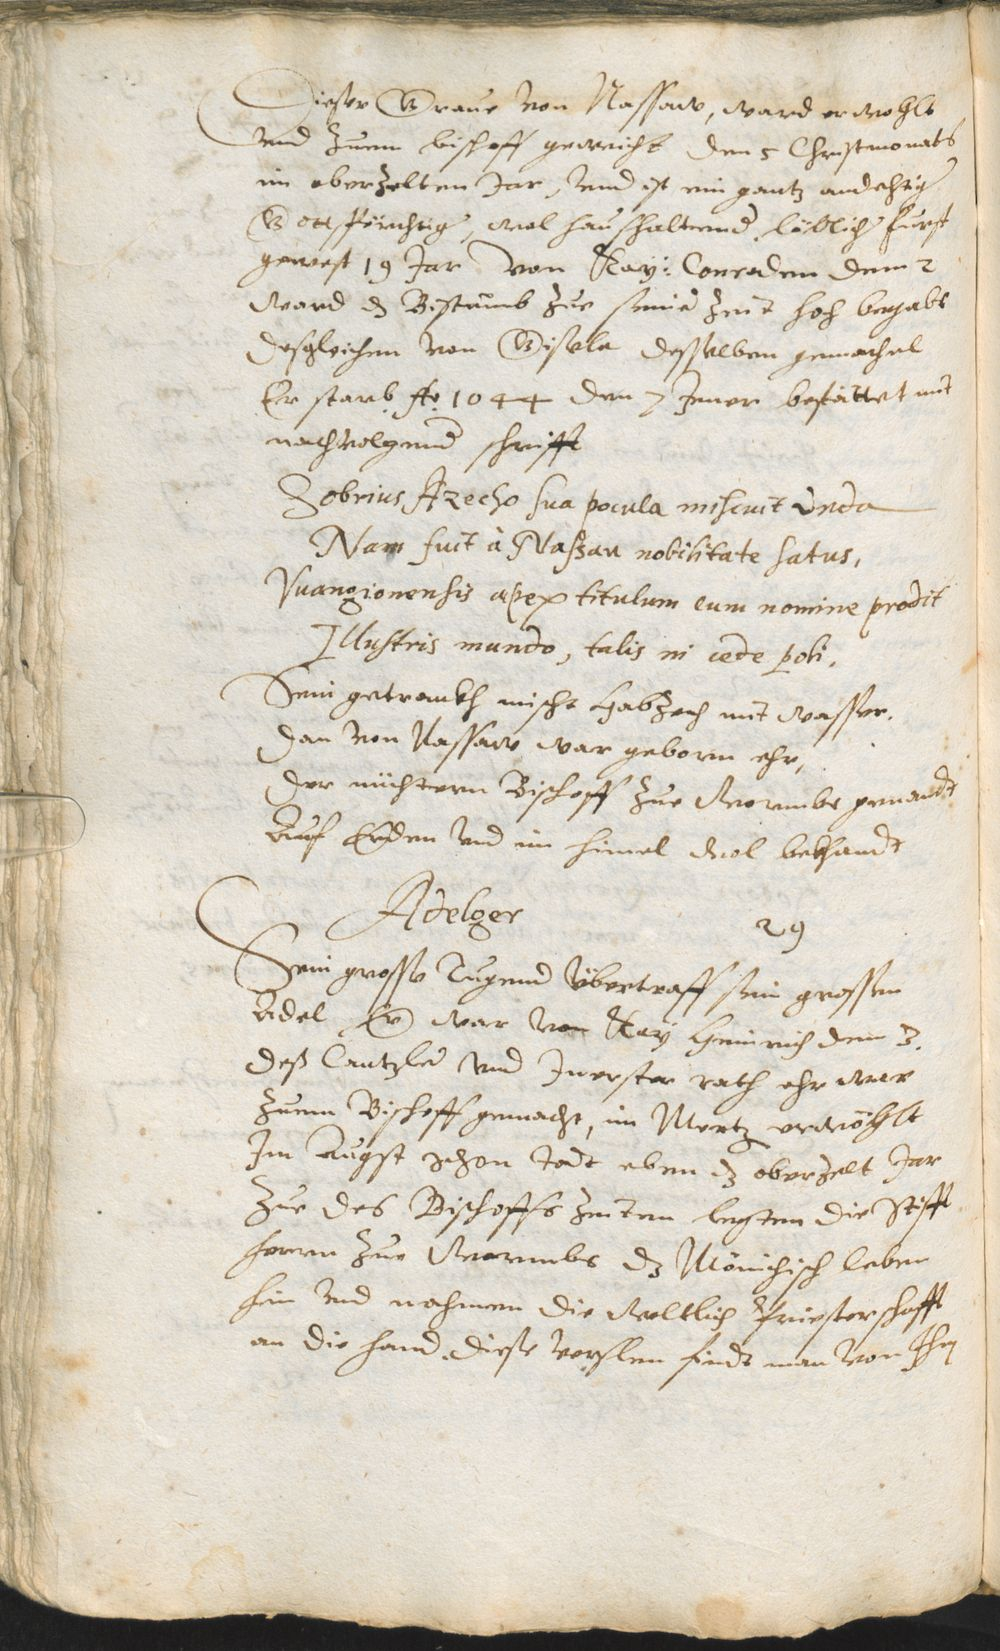 Dießer Graue von Nassaw, ward erwohlt
vnd zuem bischoff geweicht den 5 Christmonats
im oberzelten Jar, vnd ist ein gantz andechtig
Gottsförchtig, wol haußhaltend, löblich fürst
gewest 19 Jar von Kay: Conraden dem 2
ward dz Bistumb zue seiner Zeit hoch begabt
desgleichen von Gisela desselben gemachel
Er starb Ao 1044 den 7 Jener bestattet mit
nachvolgend schrifft
Sobrius Azecho sua pocula miscuit unda
Nam fuit à Naßau nobilitate satus,
Vuangionensis apex titulum cum nomine prodit
Illustris mundo, talis in aede poli.
Sein getranckh mischt Habzech mit wasser.
Dan von Nassaw war geborn ehr,
Der nüchtern Bischoff zue Wormbs genandt
Auf Erden vnd im himel wol bekhandt
Adelger 29
Sein grosse Tugend vbertraff sein grossen
Adel, Er war von Kay Heinrich dem 3.
deß Cantzler vnd Inerster rath ehr war
zuem Bischoff gemacht, im Mertz erwöhlt
Im Augst schon todt eben dz oberzelt Jar
Zue des Bischoffs Zeiten legten die Stifft
herren zue Wormbs dz Mönichisch leben
hin vnd nahmen die weltlich Priesterschafft
an die hand. Diese verslen findt man von Ihm